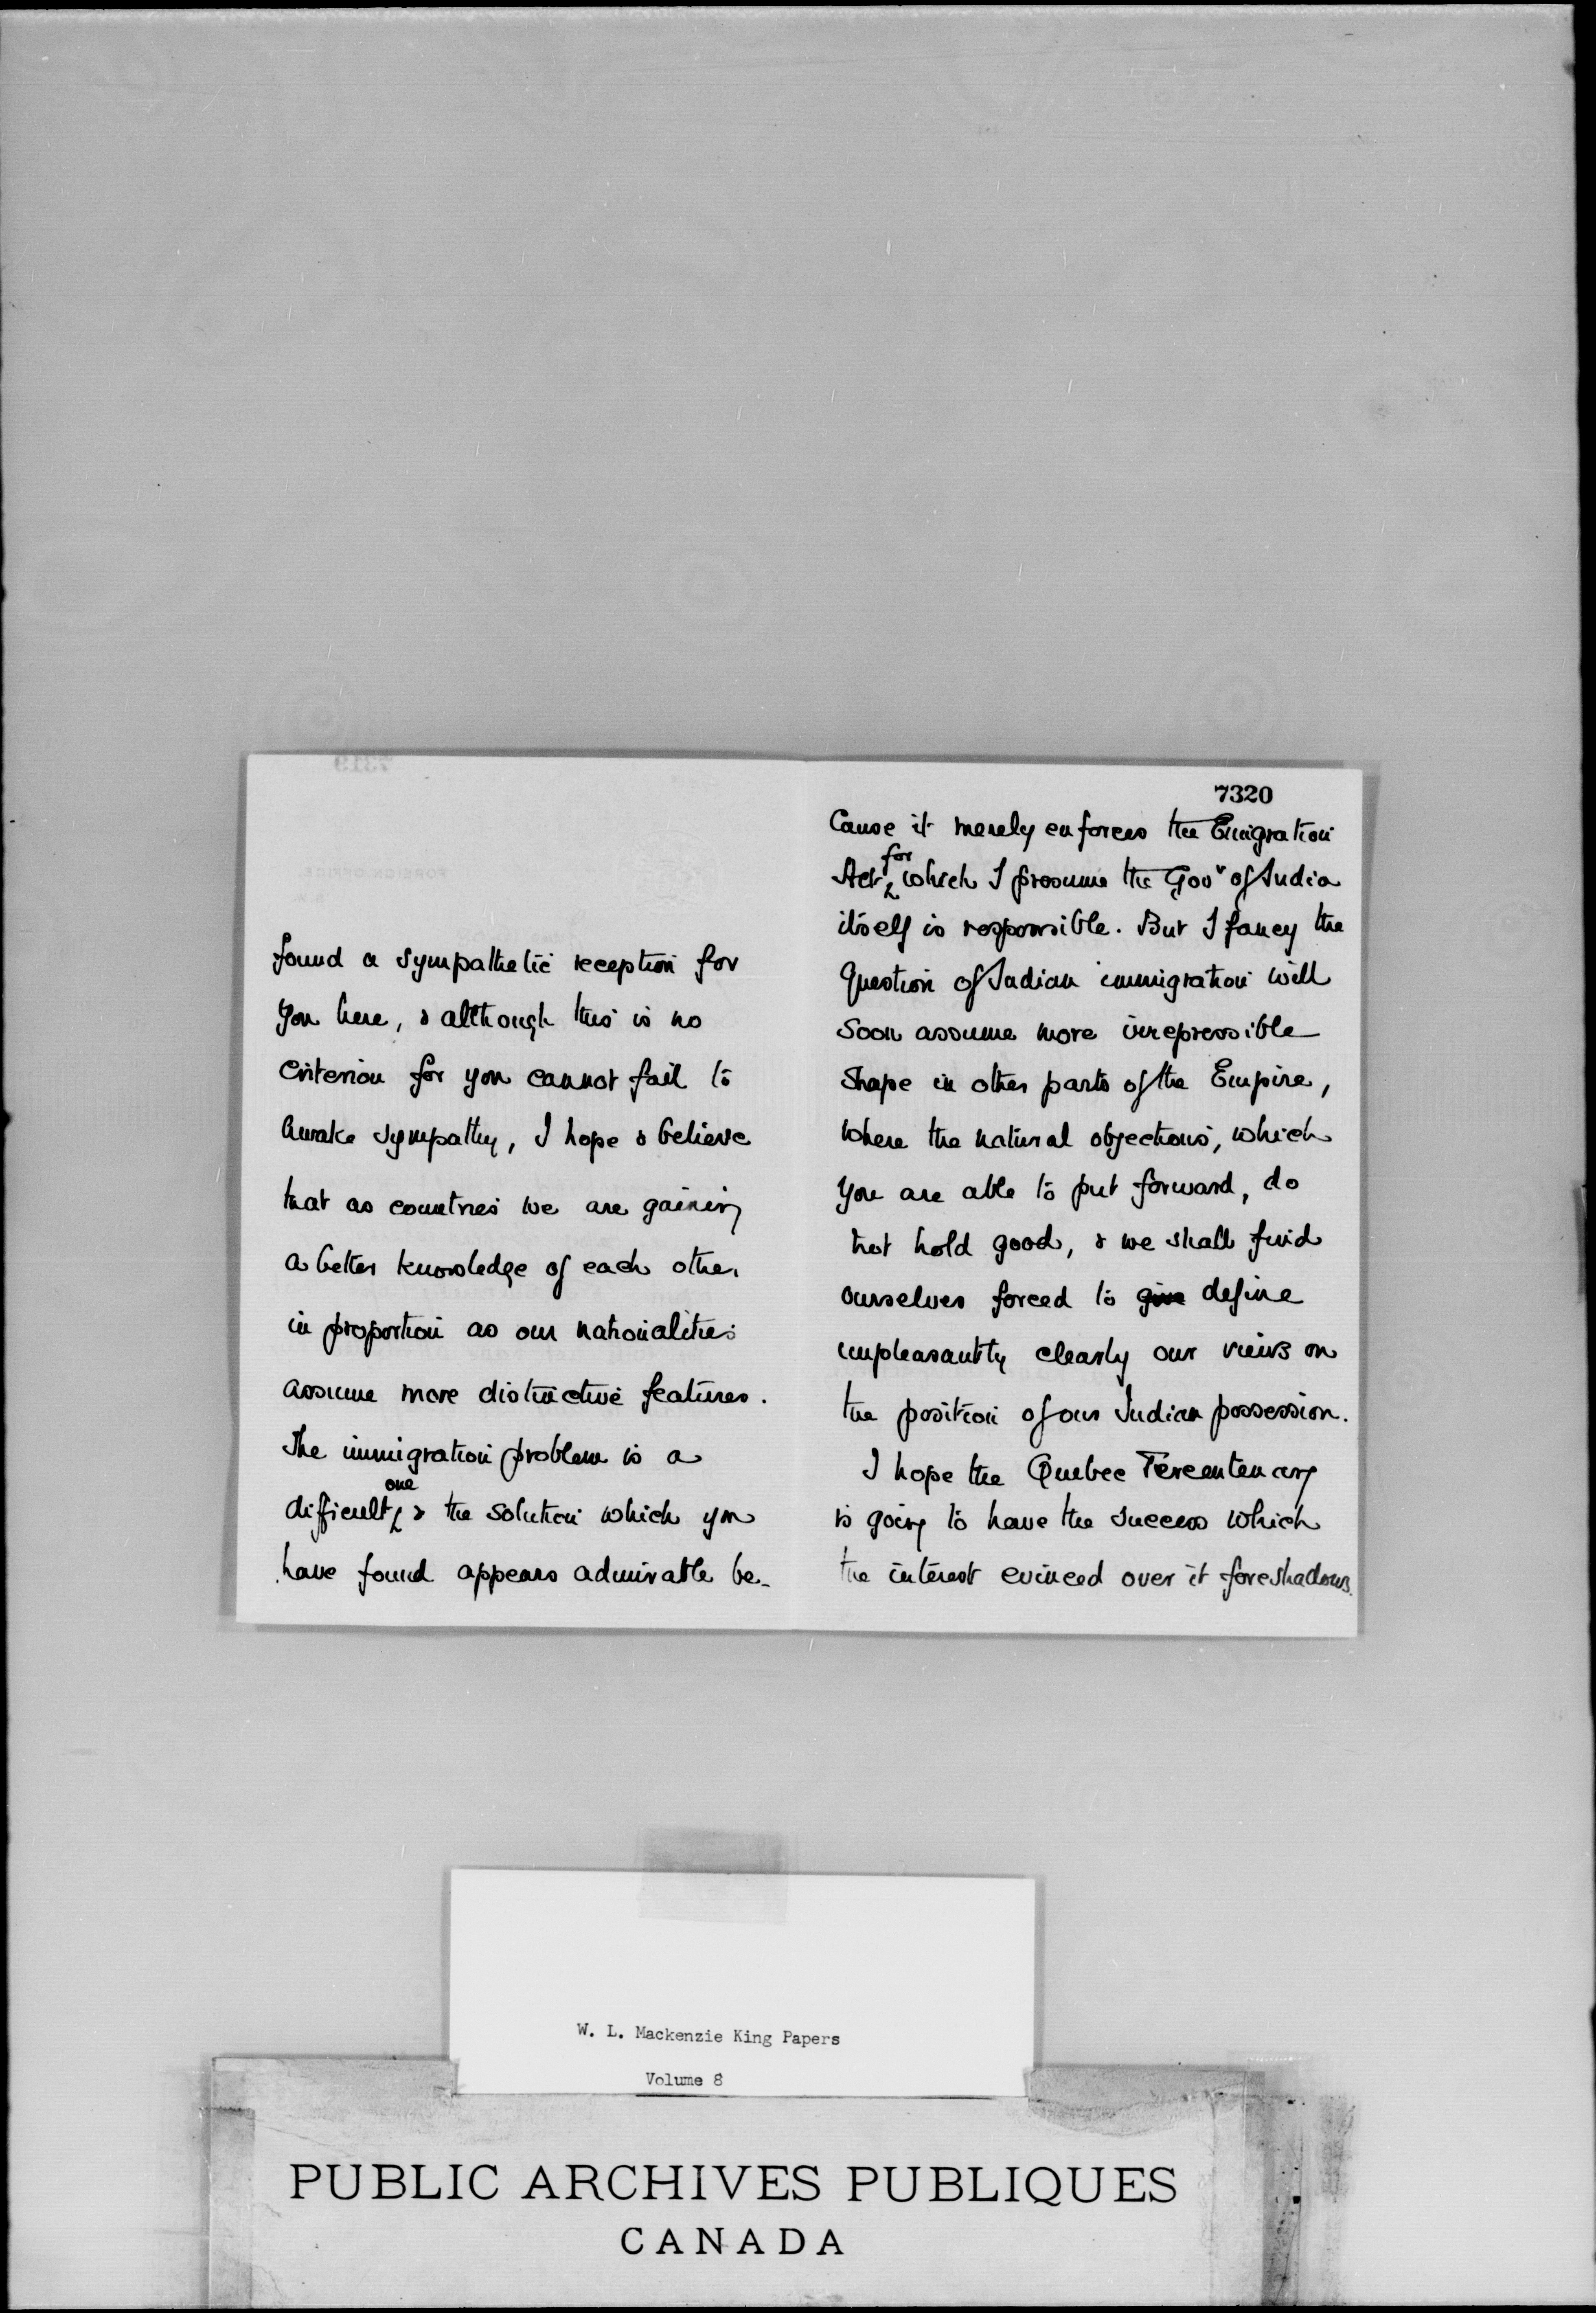 found a sympathetic reception for
you here, & although this is no
criterion for you cannot fail to
awake sympathy, I hope & believe
that as countries we are gaining
a better knowledge of each other
in proportion as our nationalities
assume more distinctive features.
The immigration problem is a
one
difficult, & the solution which you
have found appears admirable be-
7320
cause it merely enforces the Emigration
for
Act, which I presume the Govr of India
itself is responsible. But I fancy the
question of Indian immigration will
soon assume more irrepressible
shape in other parts of the Empire,
where the natural objections, which
you are able to put forward, do
not hold good, & we shall find
ourselves forced to give define
unpleasantly clearly our views on
the position of our Indian possession.
I hope the Quebec Tercentenary
is going to have the success which
the interest evinced over it foreshadows.
W. L. Mackenzie King Papers
Volume 8
PUBLIC ARCHIVES PUBLIQUES
CANADA